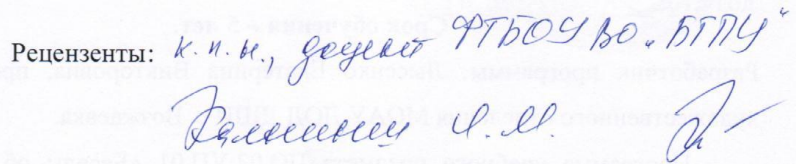 Рецензенты: к.п.н., доцент ФГБОУ ВО „БГПУ“
Калинина И.М.